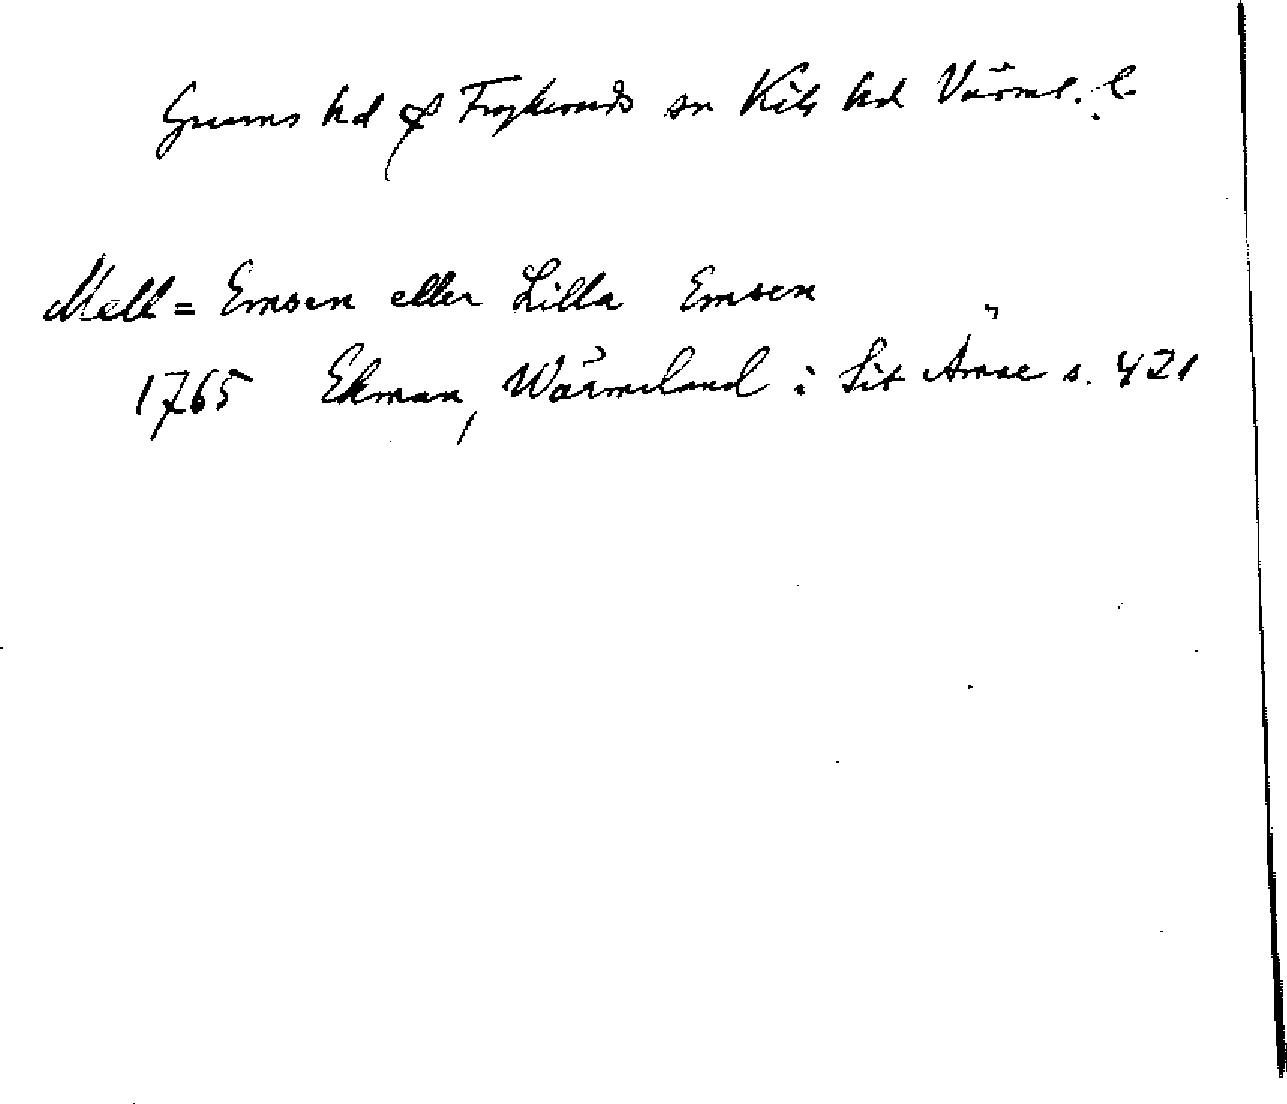 Grums hd & Frykeruds sn Kils hd Värml. l.
Mell = Emsen eller Lilla Emsen
1765 Ekman, Wärmeland i Sit Ämne s. 421